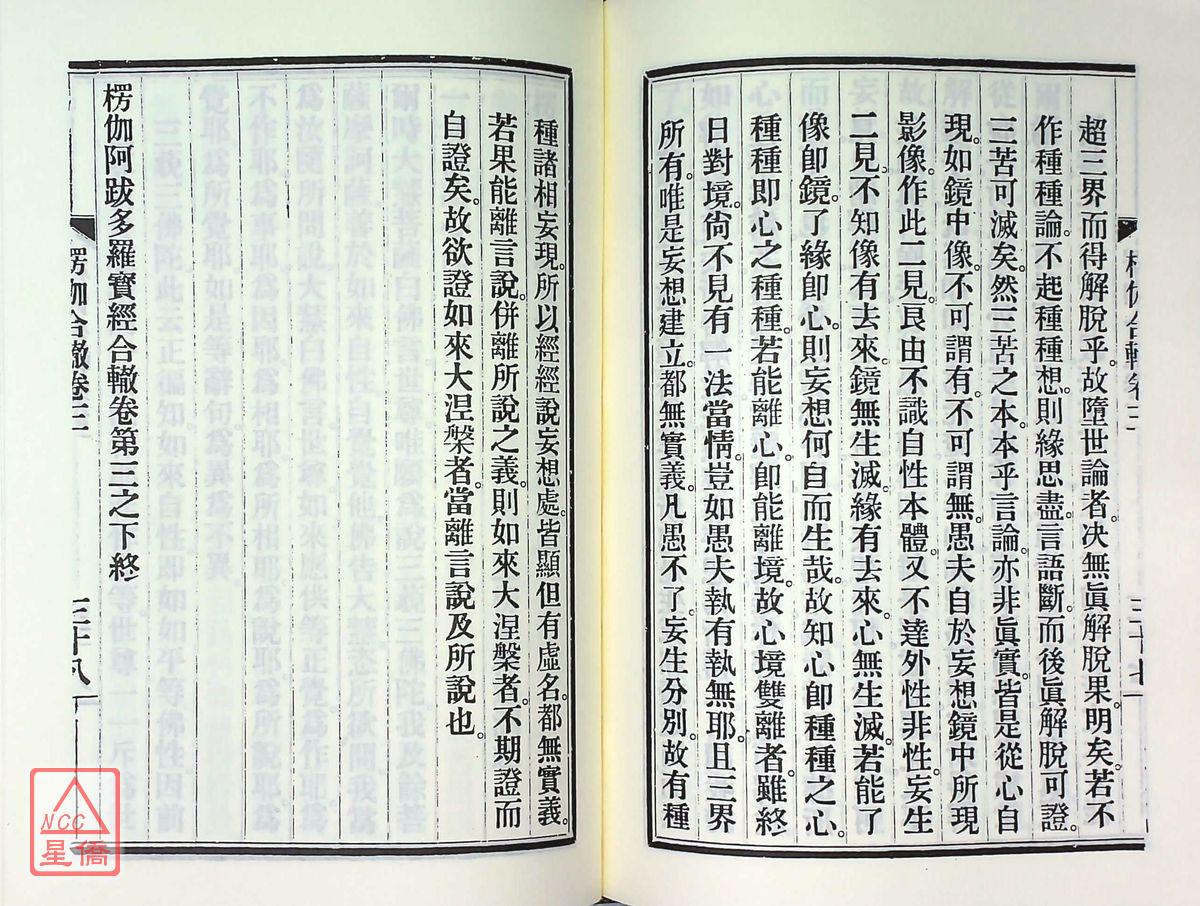 超三界而得解脫乎。故墮世論者。决無眞解脫果明矣。若不
作種種論。不起種種想。則緣思盡。言語斷。而後眞解脫可證。
三苦可滅矣。然三苦之本。本乎言論。亦非眞實。皆是從心自
現。如鏡中像。不可謂有。不可謂無。愚夫自於妄想鏡中所現
影像。作此二見。良由不識自性本體。又不達外性非性。妄生
二見。不知像有去來。鏡無生滅。緣有去來。心無生滅。若能了
像卽鏡。了緣卽心。則妄想何自而生哉。故知心卽種種之心。
種種卽心之種種。若能離心。卽能離境。故心境雙離者。雖終
日對境。尙不見有一法當情。豈如愚夫執有執無耶。且三界
所有。唯是妄想建立。都無實義。凡愚不了。妄生分別。故有種
三十七
種諸相妄現。所以經經說妄想處。皆顯但有虛名。都無實義。
若果能離言說。併離所說之義。則如來大涅槃者。不期證而
自證矣。故欲證如來大涅槃者。當離言說及所說也。
楞伽阿跋多羅寶經合轍卷第三之下終
楞伽合轍卷三
三十八
NCC
星僑